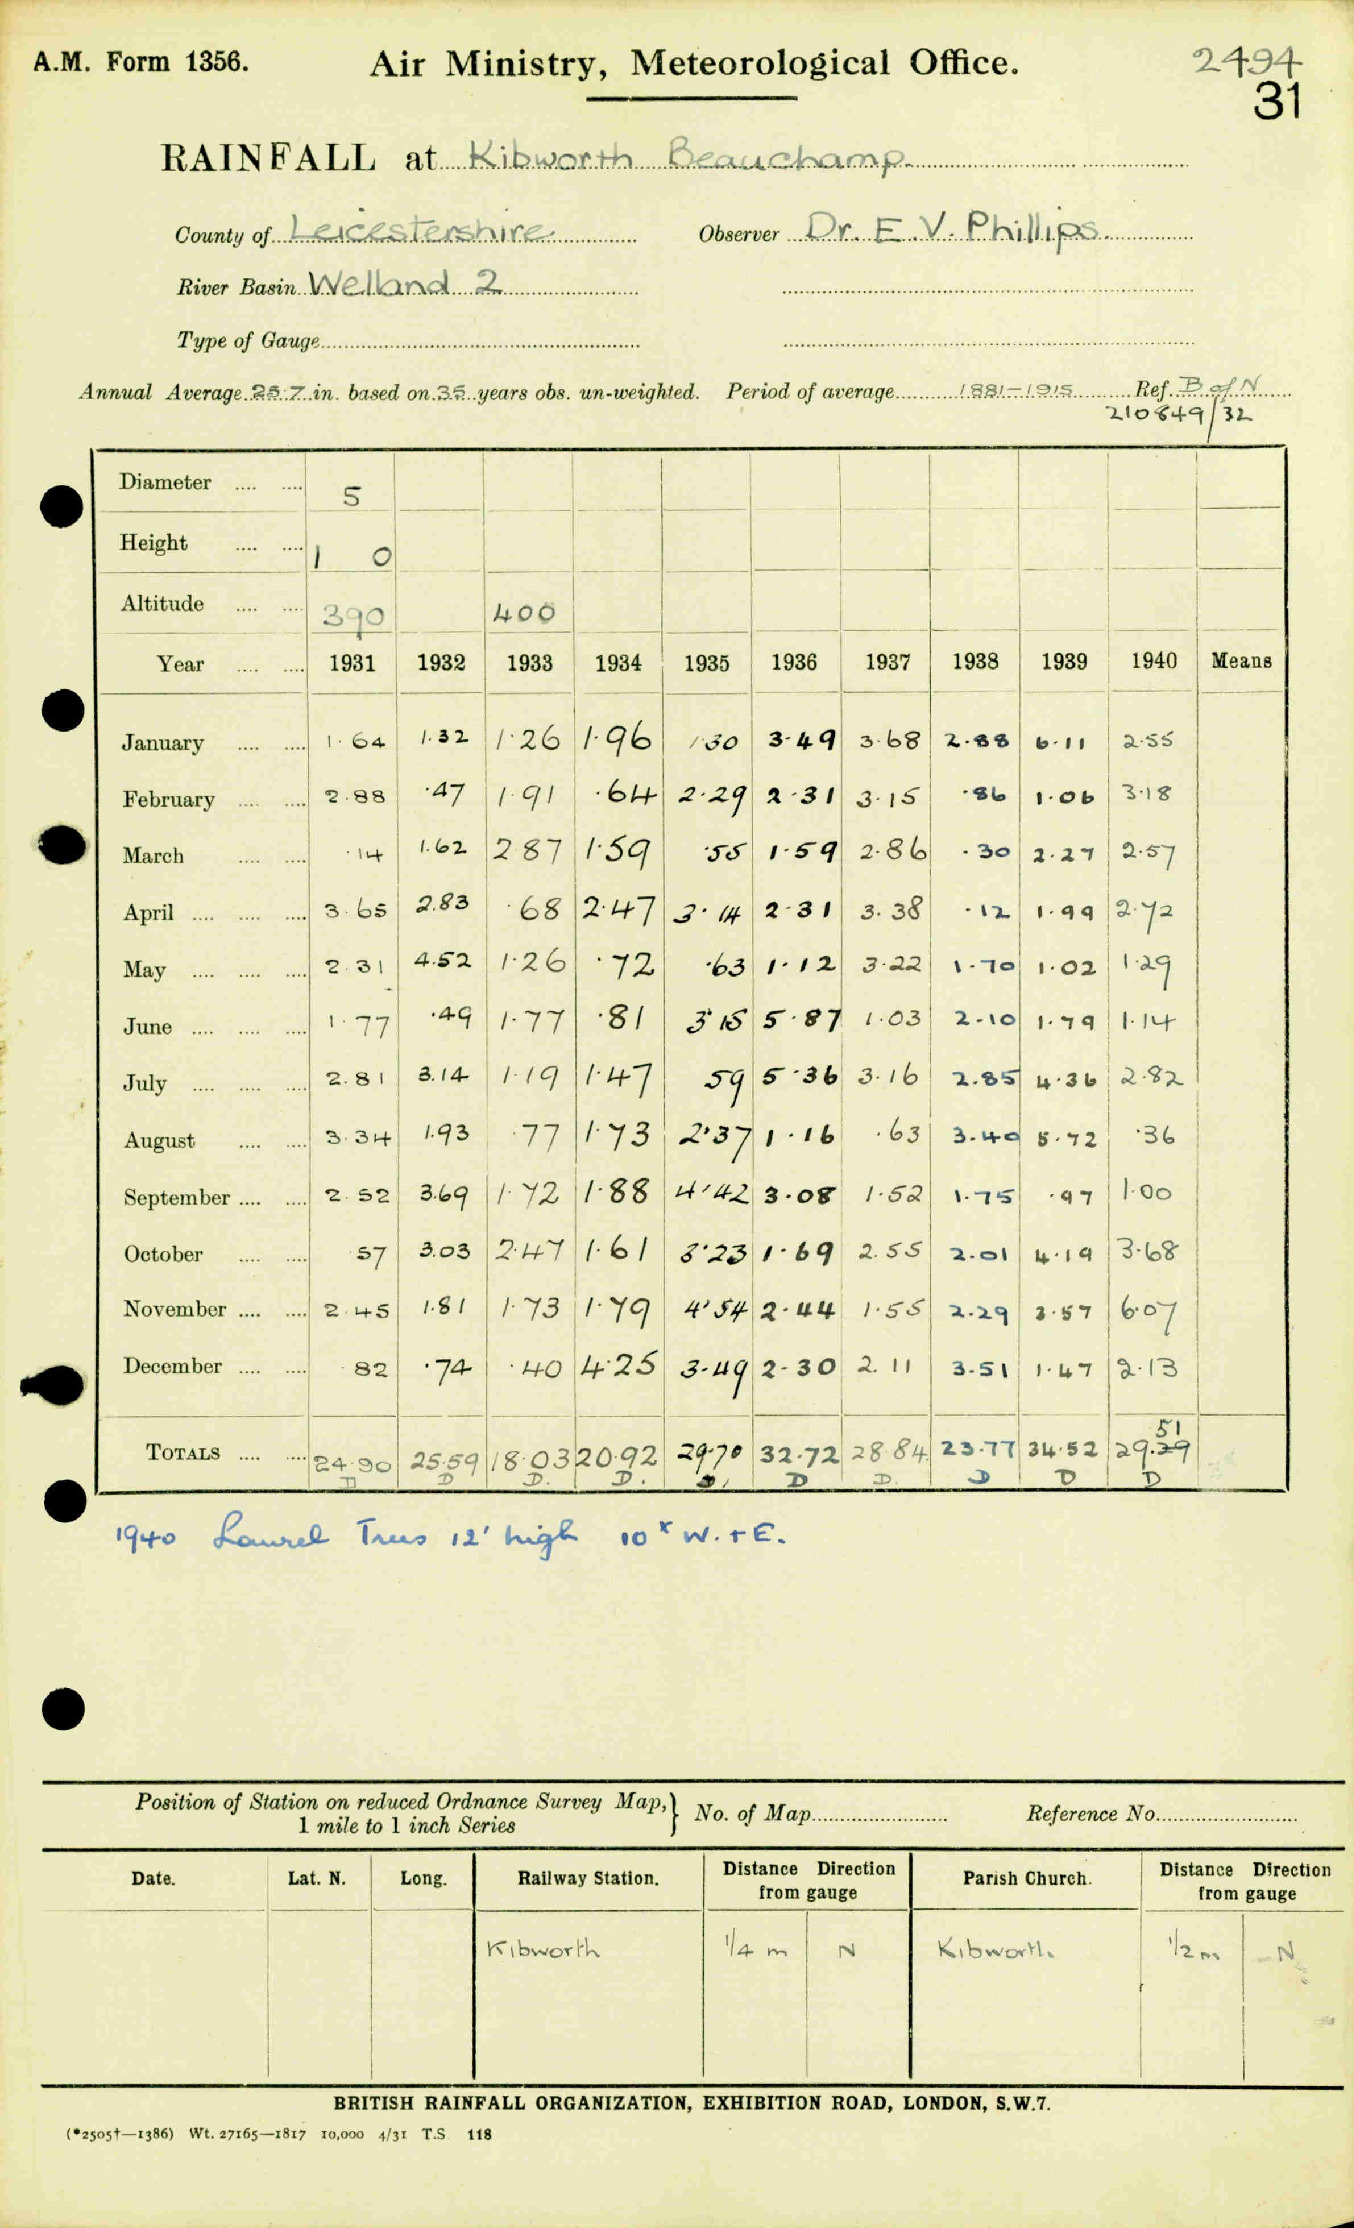 A.M. Form 1356. Air Ministry, Meteorological Office. 2494
31
RAINFALL at Kibworth Beauchamp
County of Leicestershire Observer Dr. E.V. Phillips.
River Basin Welland 2
Type of Gauge
Annual Average 25.7 in. based on 35 years obs. un-weighted. Period of average 1881-1915 Ref. B of N
210849/32
Diameter 5
Height 1 0
Altitude 390 400
Year 1931 1932 1933 1934 1935 1936 1937 1938 1939 1940 Means
January 1.64 1.32 1.26 1.96 1.30 3.49 3.68 2.88 6.11 2.55
February 2.88 .47 1.91 .64 2.29 2.31 3.15 .86 1.06 3.18
March .14 1.62 2 87 1.59 .55 1.59 2.86 .30 2.27 2.57
April 3.65 2.83 .68 2.47 3.14 2.31 3.38 .12 1.99 2.72
May 2 31 4.52 1.26 .72 .63 1.12 3.22 1.70 1.02 1.29
June 1.77 .49 1.77 .81 3.15 5.87 1.03 2.10 1.79 1.14
July 2.81 3.14 1.19 1.47 59 5.36 3.16 2.85 4.36 2.82
August 3.34 1.93 .77 1.73 2.37 1.16 .63 3.40 5.72 .36
September 2.52 3.69 1.72 1.88 4.42 3.08 1.52 1.75 .97 1.00
October 57 3.03 2.47 1.61 3.23 1.69 2.55 2.01 4.19 3.68
November 2.45 1.81 1.73 1.79 4.54 2.44 1.55 2.29 3.57 6.07
December 82 .74 .40 4.25 3.49 2.30 2.11 3.51 1.47 2.13
51
TOTALS 24.90 25.59 18.03 20.92 29.70 32.72 28.84 23.77 34.52 29.29
D D D. D. D. D D. D D D
1940 Laurel Trees 12' high 10x W. + E.
Position of Station on reduced Ordnance Survey Map,} No. of Map Reference No.
1 mile to 1 inch Series
Date. Lat. N. Long. Railway Station. Distance Direction from gauge Parish Church. Distance Direction from gauge
Kibworth 1/4 m N Kibworth. 1/2 m N
BRITISH RAINFALL ORGANIZATION, EXHIBITION ROAD, LONDON, S.W.7.
(*2505†—1386) Wt. 27165—1817 10,000 4/31 T.S. 118